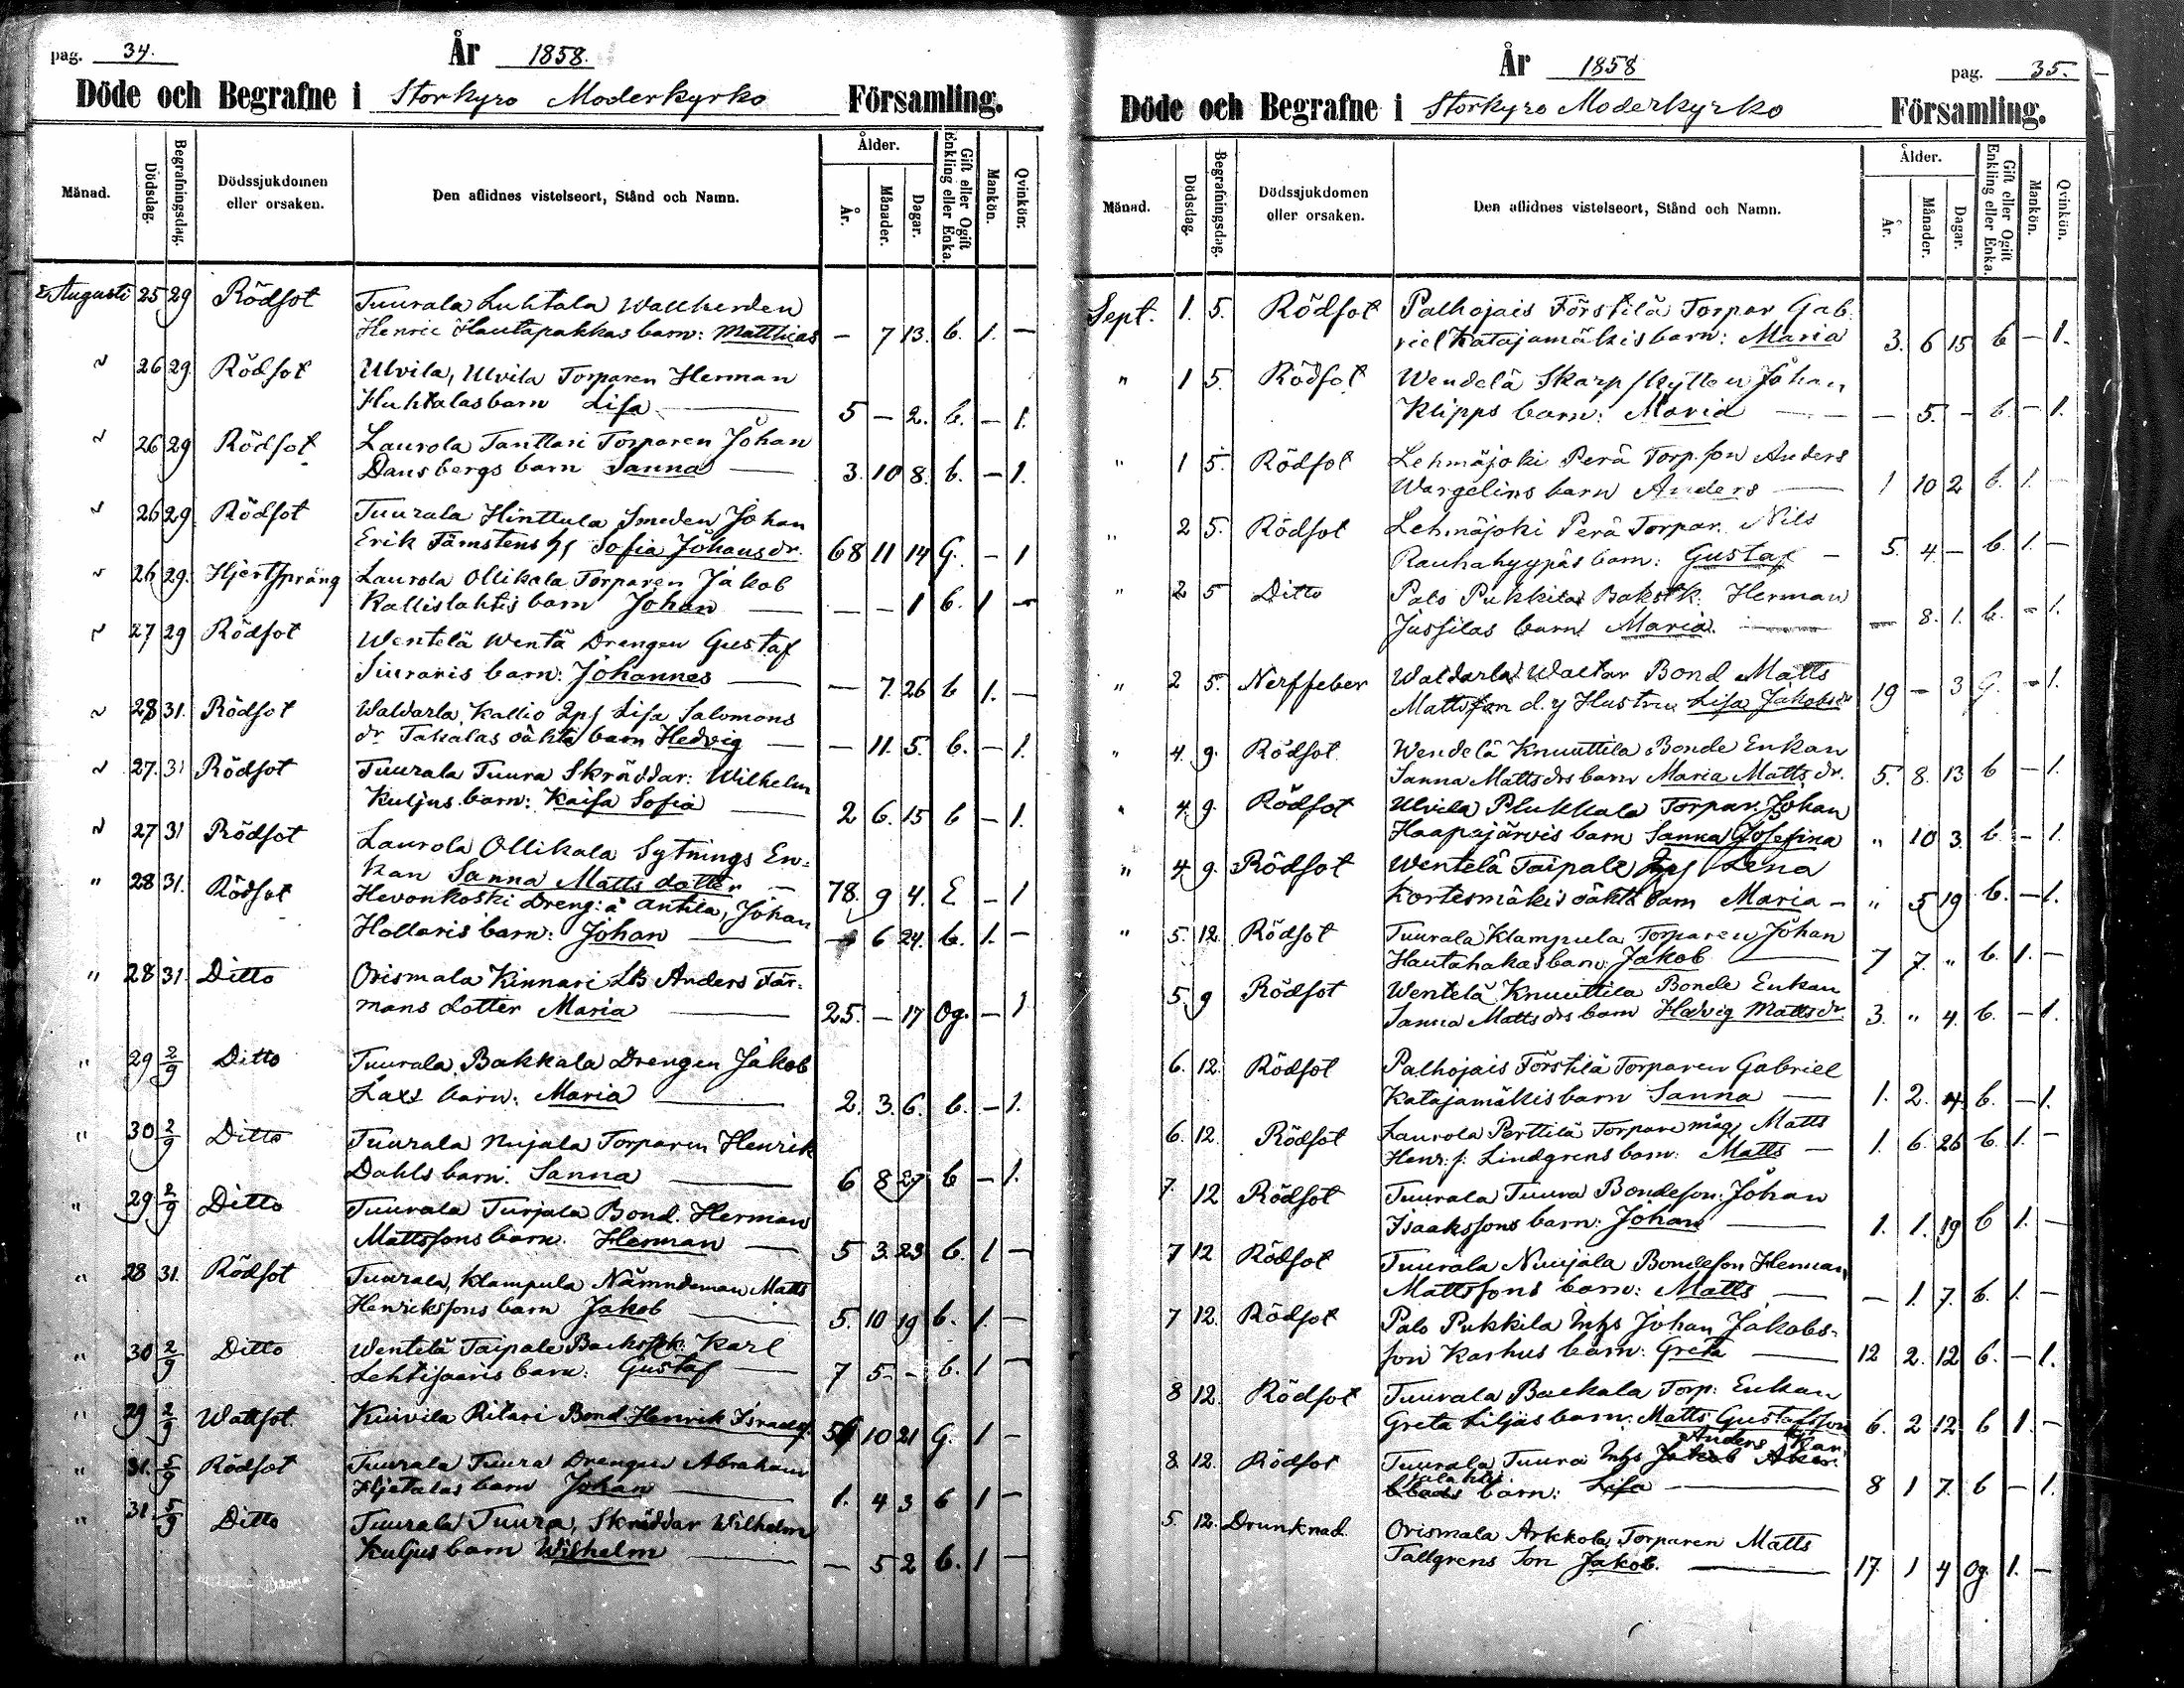 pag. 34. År 1858.
Döde och Begrafne i Storkyro Moderkyrko Församling.
Månad. Dödsdag. Begrafningsdag. Dödssjukdomen eller orsaken. Den aflidnes vistelseort, Stånd och Namn. Ålder. År. Månader. Dagar. Gift eller Ogift Enkling eller Enka. Mankön. Qvinkön.
Augusti 25 29 Rödsot Tuurala Luhtala Wallherden
Henric Hautapakkas barn: Matthias — 7 13. b. 1. —
" 26 29 Rödsot Ulvila, Ulvila Torparen Herman
Huhtalas barn Lisa — 5 — 2. b. — 1.
" 26 29 Rödsot Laurola Tanttari Torparen Johan
Dansbergs barn Sanna — 3. 10 8. b. — 1.
" 26 29 Rödsot Tuurala Hinttula Smeden Johan
Erik Tämstens h; Sofia Johansdr. 68 11 14 G. — 1
" 26 29. Hjertspräng Laurola Ollikala Torparen Jakob
Kallislahtis barn Johan — — — 1 b. 1 —
" 27 29 Rödsot Wentelä Wentä Drengen Gustaf
Siuraris barn: Johannes — — 7. 26 b 1. —
" 28 31. Rödsot Waldarla, Kallio Lisa Salomons
dr Takalas oäkta barn Hedvig — — 11. 5. b. — 1.
" 27. 31 Rödsot Tuurala Tuura Skräddar: Wilhelm
Kuljus barn: Kaisa Sofia — 2 6. 15 b — 1.
" 27 31 Rödsot Laurola Ollikala Sytnings En-
kan Sanna Matts dotter — 78. 9 4. E — 1
" 28 31. Rödsot Hevonkoski Dreng: å Antila, Johan
Hollaris barn: Johan — — 6 24. b. 1. —
" 28 31. Ditto Orismala Kinnari Anders Fär-
mans dotter Maria — 25. — 17 Og. — 1
" 29 2/9 Ditto Tuurala, Bakkala Drengen Jakob
Laxs barn: Maria — 2. 3. 6. b. — 1.
" 30 2/9 Ditto Tuurala Nujala Torparen Henrik
Dahls barn: Sanna — 6 8 27 b — 1.
" 29 2/9 Ditto Tuurala Turjala Bond. Herman
Mattssons barn. Herman — 5 3. 23 b. 1 —
" 28 31. Rödsot Tuurala, Klampula Nämndeman Matts
Henrikssons barn Jakob — 5. 10 19 b. 1. —
" 30 2/9 Ditto Wentelä Taipale Backstk: Karl
Lehtisaaris barn: Gustaf — 7 5. — b. 1 —
" 29 2/9 Wattsot Kuivila Ritari Bond. Henrik Israelss. 10 21 G. 1 —
" 31. 5/9 Rödsot Tuurala Tuura Drengen Abraham
Hjetalas barn Johan — 1. 4 3 b 1 —
" 31. 5/9 Ditto Tuurala Tuura, Skräddar Wilhelm
Kuljus barn Wilhelm — — 5 2 b. 1 —
År 1858 pag. 35.
Döde och Begrafne i Storkyro Moderkyrko Församling.
Månad. Dödsdag. Begrafningsdag. Dödssjukdomen eller orsaken. Den aflidnes vistelseort, Stånd och Namn. Ålder. År. Månader. Dagar. Gift eller Ogift Enkling eller Enka. Mankön. Qvinkön.
Sept. 1. 5. Rödsot Palhojais Förstilä Torpar Gab-
riel Katajamäkis barn: Maria 3. 6 15 b — 1.
" 1 5. Rödsot Wendelä Skarpskytten Johan
Klipps barn: Maria — — 5. — b. — 1.
" 1 5. Rödsot Lehmäjoki Perä Torp. son Anders
Wargelins barn Anders — 1 10 2 b. 1. —
" 2 5. Rödsot Lehmäjoki Perä Torpar. Nils
Rauhahyypäs barn: Gustaf — 5. 4 — b. 1. —
" 2 5 Ditto Palo Pukkila Bakstk: Herman
Jussilas barn Maria. — — 8. 1. b. — 1.
" 2 5. Nerffeber Waldarla Waltar Bond Matts
Mattsson d. y Hustru Lisa Jakobsdr 19 — 3 G. — 1.
" 4. 9. Rödsot. Wendelä Knuuttila Bonde Enkan
Sanna Mattsdrs barn Maria Mattsdr. 5. 8. 13 b — 1.
" 4. 9. Rödsot Ulvila Plukkala Torpar. Johan
Haapajärvis barn Sanna Josefina " 10 3. b. — 1.
" 4 9. Rödsot Wentelä Taipale Lena
Kortesmäkis oäkta barn Maria — " 5 19 b. — 1.
" 5. 12. Rödsot Tuurala Klampula Torparen Johan
Hautahakas barn: Jakob — 7 7. " b. 1. —
5. 9 Rödsot Wentelä Knuuttila Bonde Enkan
Sanna Mattsdrs barn Hedvig Mattsdr. 3. " 4. b. — 1.
6. 12. Rödsot Palhojais Förstilä Torparen Gabriel
Katajamäkis barn Sanna — 1. 2. 4. b. — 1.
6. 12. Rödsot Laurola Perttilä Torpare måg Matts
Henr: s: Lindgrens barn: Matts — 1. 6. 26 b. 1. —
7. 12 Rödsot Tuurala Tuura Bondeson: Johan
Isaakssons barn: Johan — 1. 1. 19 b 1. —
7 12 Rödsot Tuurala Nuujala Bondeson Herman
Mattssons barn: Matts — — 1. 7. b. 1. —
7 12. Rödsot Palo Pukkila Inhs Johan Jakobs-
son Karhus barn: Greta — 12 2. 12 b. — 1.
8 12. Rödsot Tuurala Backala Torp: Enkan
Greta Liljas barn: Matts Gustafsson 6. 2 12 b 1. —
Anders Kar
8. 12. Rödsot Tuurala Tuura Inhs Jakob
barn: Lisa — 8 1 7. b — 1.
5. 12. Drunknad. Orismala Arkkola Torparen Matts
Tallgrens son Jakob. — 17. 1 4 Og. 1. —